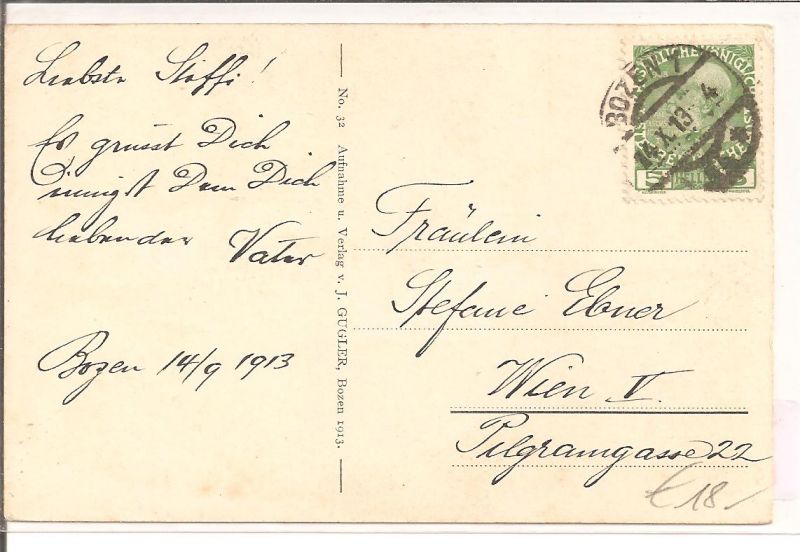 Liebste Steffi!
Es grüsst Dich
innigst Dein Dich
liebender Vater
Bozen 14/9 1913
No. 32 Aufnahme u. Verlag v. J. GUGLER, Bozen 1913.
BOZEN 1
14.X.13
5
Fräulein
Stefanie Ebner
Wien V.
Pilgramgasse 22
€ 18.-